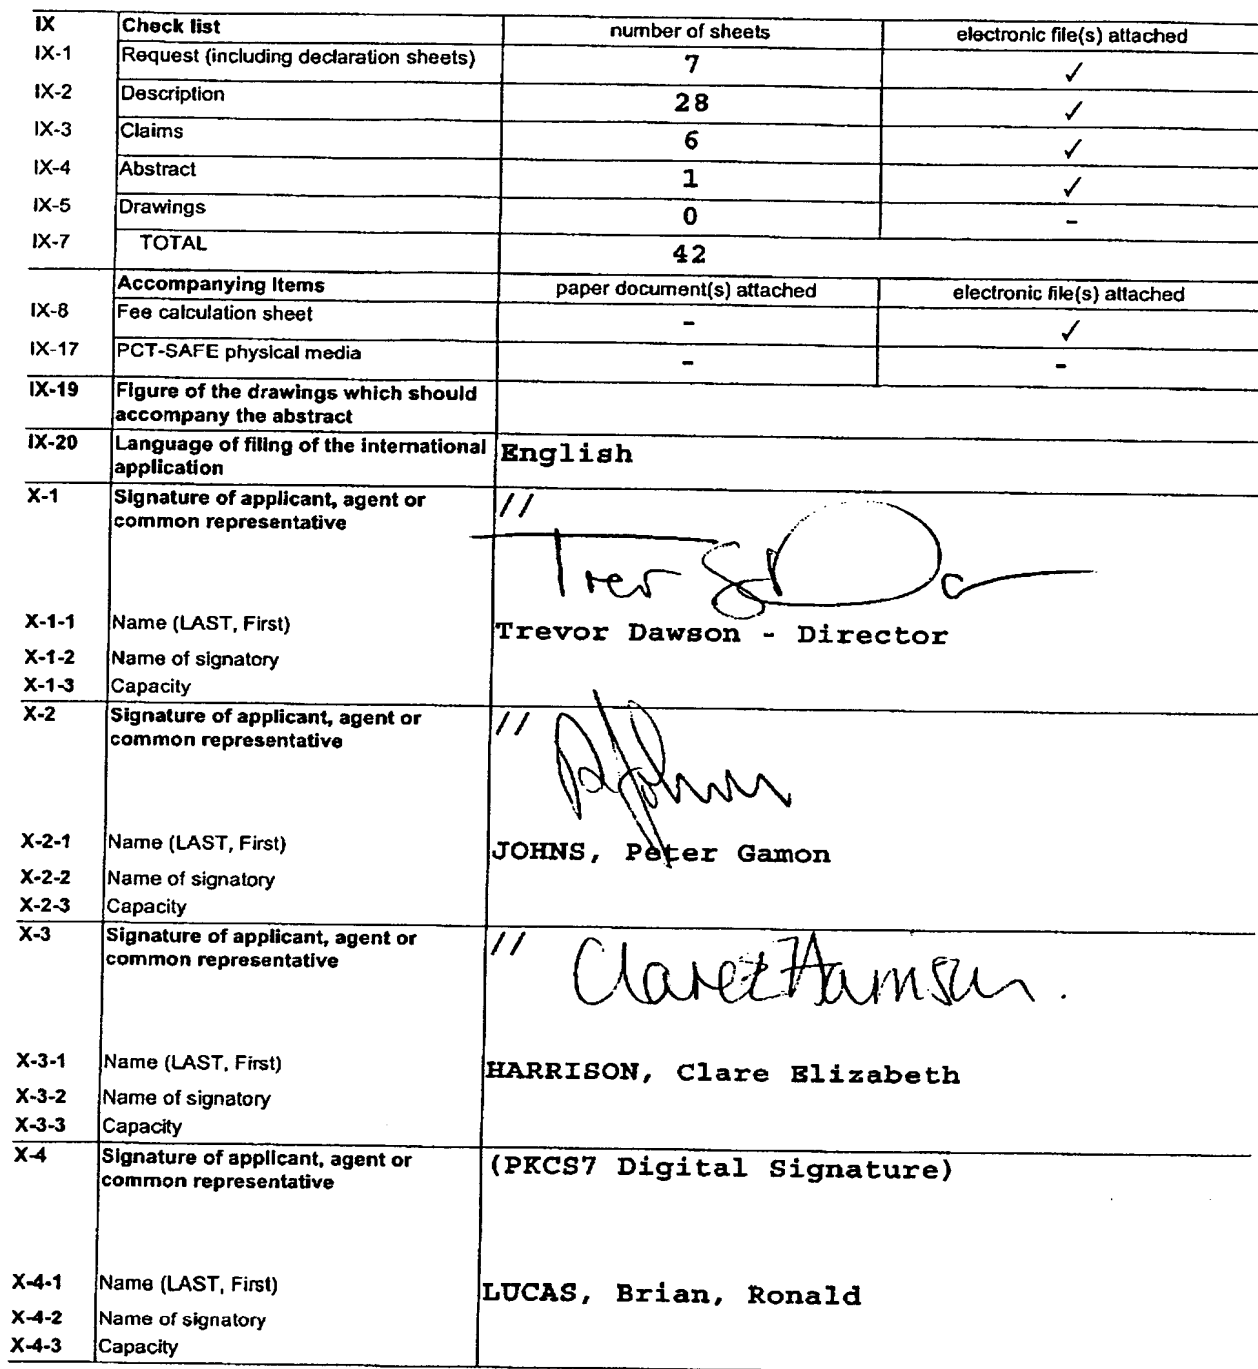 IX Check list number of sheets electronic file(s) attached
IX-1 Request (including declaration sheets) 7 ✓
IX-2 Description 28 ✓
IX-3 Claims 6 ✓
IX-4 Abstract 1 ✓
IX-5 Drawings 0 -
IX-7 TOTAL 42
Accompanying Items paper document(s) attached electronic file(s) attached
IX-8 Fee calculation sheet - ✓
IX-17 PCT-SAFE physical media - -
IX-19 Figure of the drawings which should
accompany the abstract
IX-20 Language of filing of the international
application English
X-1 Signature of applicant, agent or
common representative //
X-1-1 Name (LAST, First) Trevor Dawson - Director
X-1-2 Name of signatory
X-1-3 Capacity
X-2 Signature of applicant, agent or
common representative //
X-2-1 Name (LAST, First) JOHNS, Peter Gamon
X-2-2 Name of signatory
X-2-3 Capacity
X-3 Signature of applicant, agent or
common representative //
X-3-1 Name (LAST, First) HARRISON, Clare Elizabeth
X-3-2 Name of signatory
X-3-3 Capacity
X-4 Signature of applicant, agent or
common representative (PKCS7 Digital Signature)
X-4-1 Name (LAST, First) LUCAS, Brian, Ronald
X-4-2 Name of signatory
X-4-3 Capacity